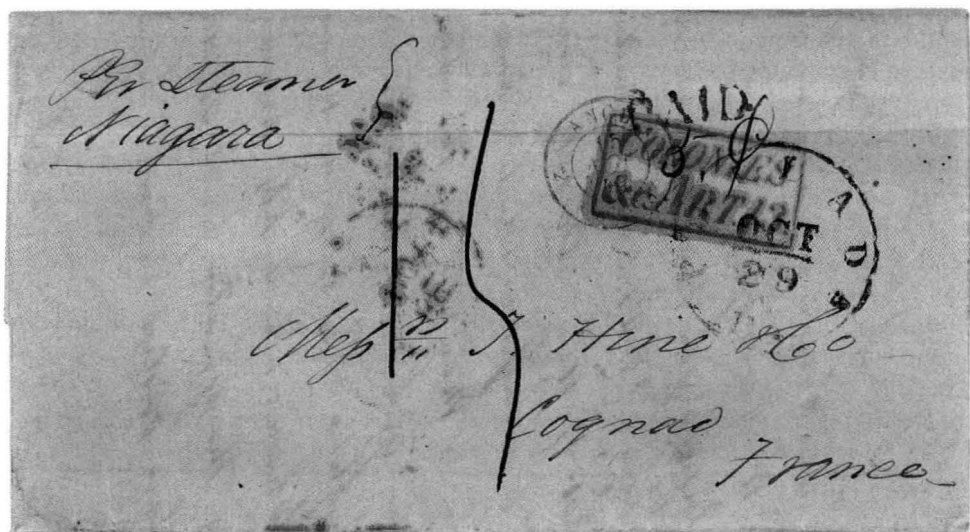 Per Steamer
Niagara
PAID
COLONIES
&c. ART 13
A D A
OCT
29
15
Messrs T. Hine & Co
Cognac
France